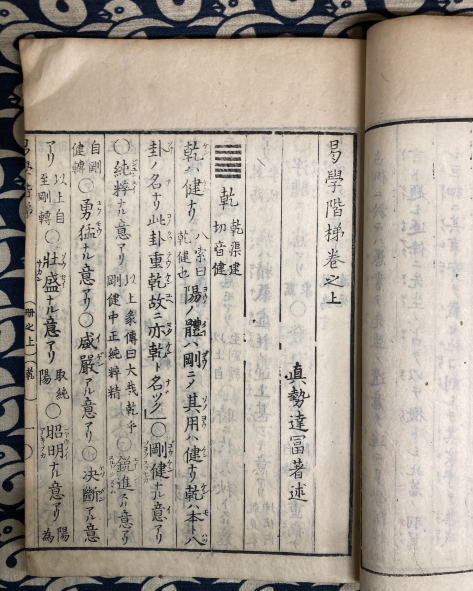 易學階梯卷之上
眞勢達冨著述
乾 乾渠建
切音健
乾ハ健ナリ 八索曰
乾健也 陽ノ體ハ剛ニノ其用ハ健ナリ乾ハ本ト八
卦ノ名ナリ此卦重乾故ニ亦乾ト名ヅク○剛健ナル意アリ
○純粹ナル意アリ 以上彖傳曰大哉乾乎
剛健中正純粹精 ○鋭進スル意アリ
自剛
健轉 ○勇猛ナル意アリ○威嚴アル意アリ○決斷アル意
アリ 以上自
至剛轉 ○壯盛ナル意アリ 取純
陽 ○昭明ナル意アリ 陽
為
冊之上
乾
一